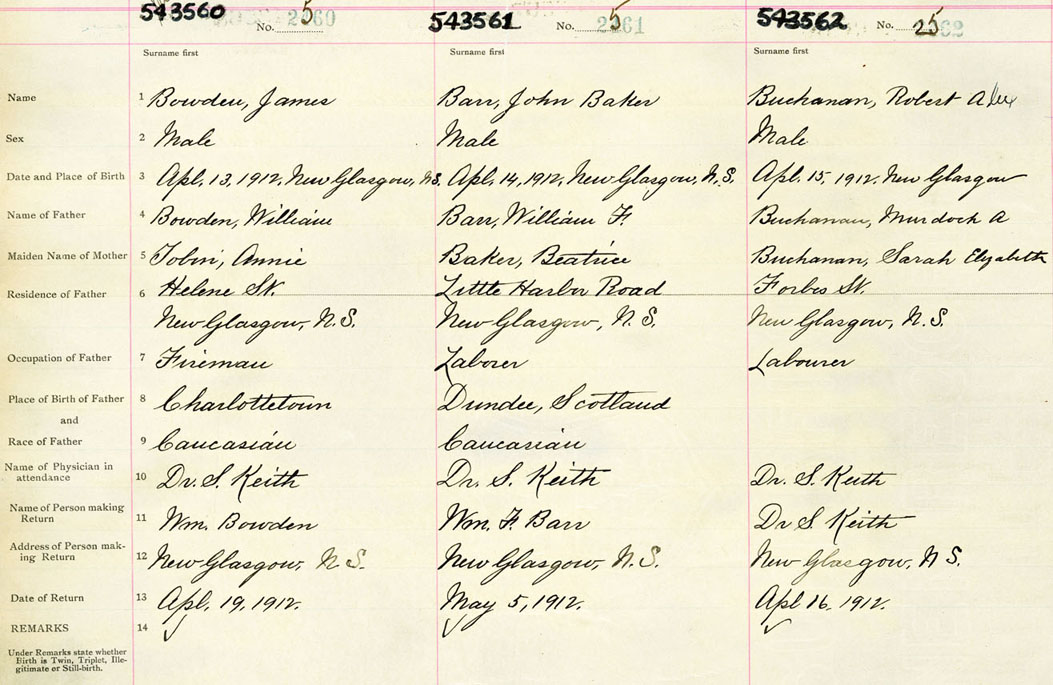 543560 No. 5 2560 543561 No. 5 2561 543562 No. 25 2562
Surname first Surname first Surname first
Name 1 Bowden, James Barr, John Baker Buchanan, Robert Alex
Sex 2 Male Male Male
Date and Place of Birth 3 Apl. 13, 1912, New Glasgow, N.S. Apl. 14, 1912, New Glasgow, N.S. Apl. 15, 1912. New Glasgow
Name of Father 4 Bowden, William Barr, William F. Buchanan, Murdoch A
Maiden Name of Mother 5 Tobin, Annie Baker, Beatrice Buchanan, Sarah Elizabeth
Residence of Father 6 Helene St. Little Harbor Road Forbes St.
New Glasgow, N.S. New Glasgow, N.S. New Glasgow, N.S.
Occupation of Father 7 Fireman Laborer Labourer
Place of Birth of Father 8 Charlottetown Dundee, Scotland
and
Race of Father 9 Caucasian Caucasian
Name of Physician in
attendance 10 Dr. S. Keith Dr. S. Keith Dr. S. Keith
Name of Person making
Return 11 Wm. Bowden Wm. F. Barr Dr S Keith
Address of Person mak-
ing Return 12 New Glasgow, N S. New Glasgow, N.S. New Glasgow, N S.
Date of Return 13 Apl. 19, 1912. May 5, 1912. Apl 16, 1912.
REMARKS 14
Under Remarks state whether
Birth is Twin, Triplet, Ille-
gitimate or Still-birth.